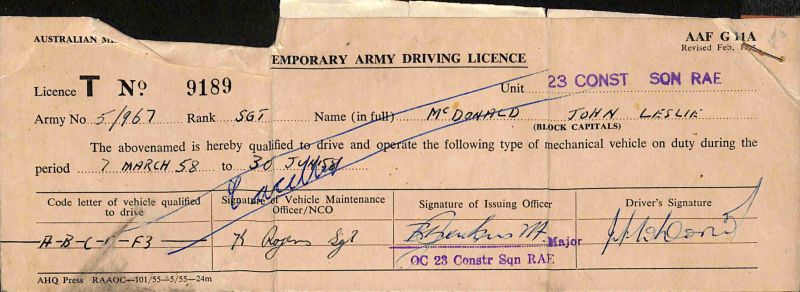 AUSTRALIAN M
EMPORARY ARMY DRIVING LICENCE
AAF G 11A
Revised Feb.
Licence T No 9189
Unit 23 CONST SQN RAE
Army No 5/967 Rank SGT Name (in full) McDONALD JOHN LESLIE
(BLOCK CAPITALS)
The abovenamed is hereby qualified to drive and operate the following type of mechanical vehicle on duty during the
period 7 MARCH 58 to 30 JUN 58
Cancelled
Code letter of vehicle qualified to drive
Signature of Vehicle Maintenance Officer/NCO
Signature of Issuing Officer
Driver's Signature
A-B-C-F-F3
K Rogers Sgt
Major
OC 23 Constr Sqn RAE
AHQ Press RAAOC—101/55—5/55—24m